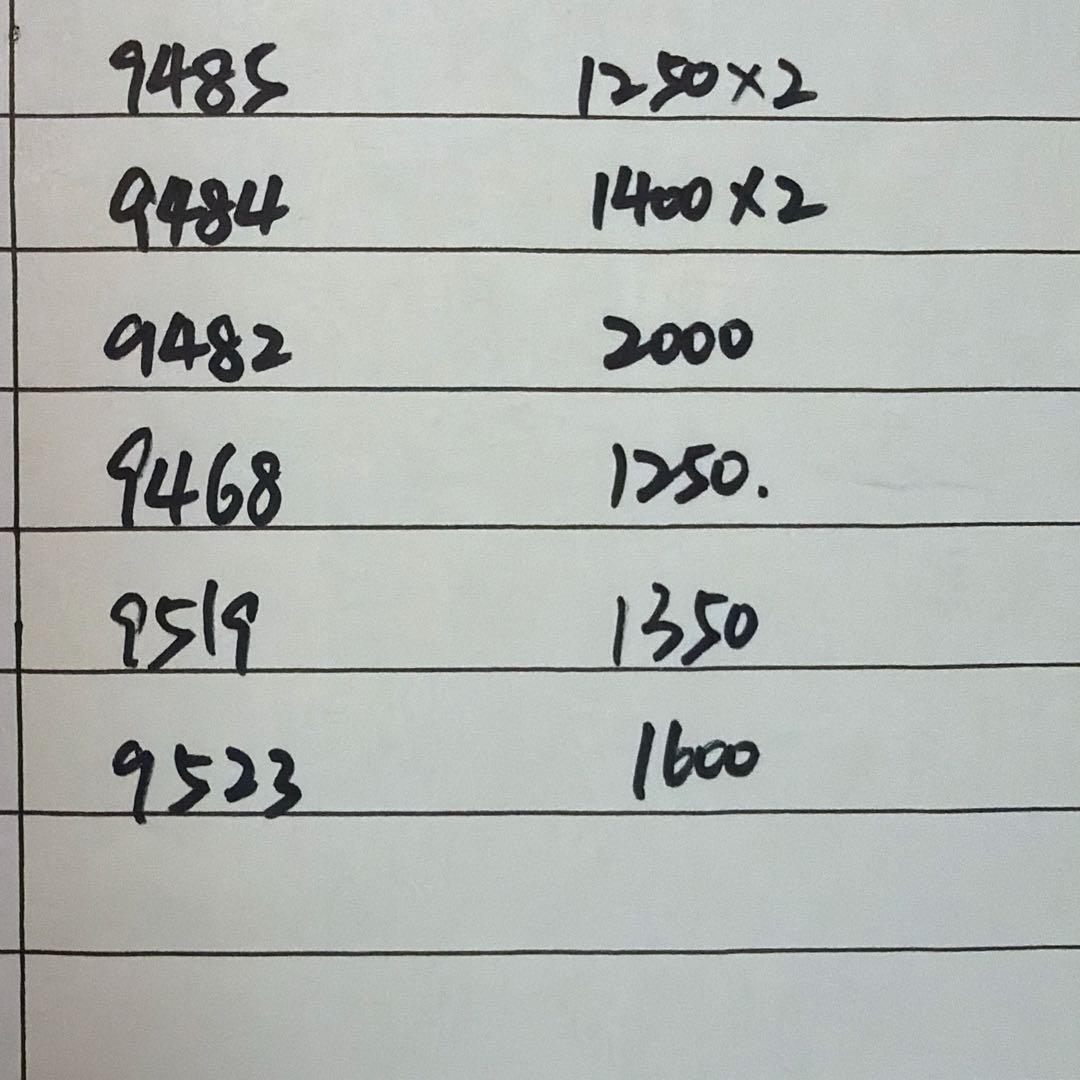 9485 1250×2
9484 1400×2
9482 2000
9468 1250.
9519 1350
9523 1600